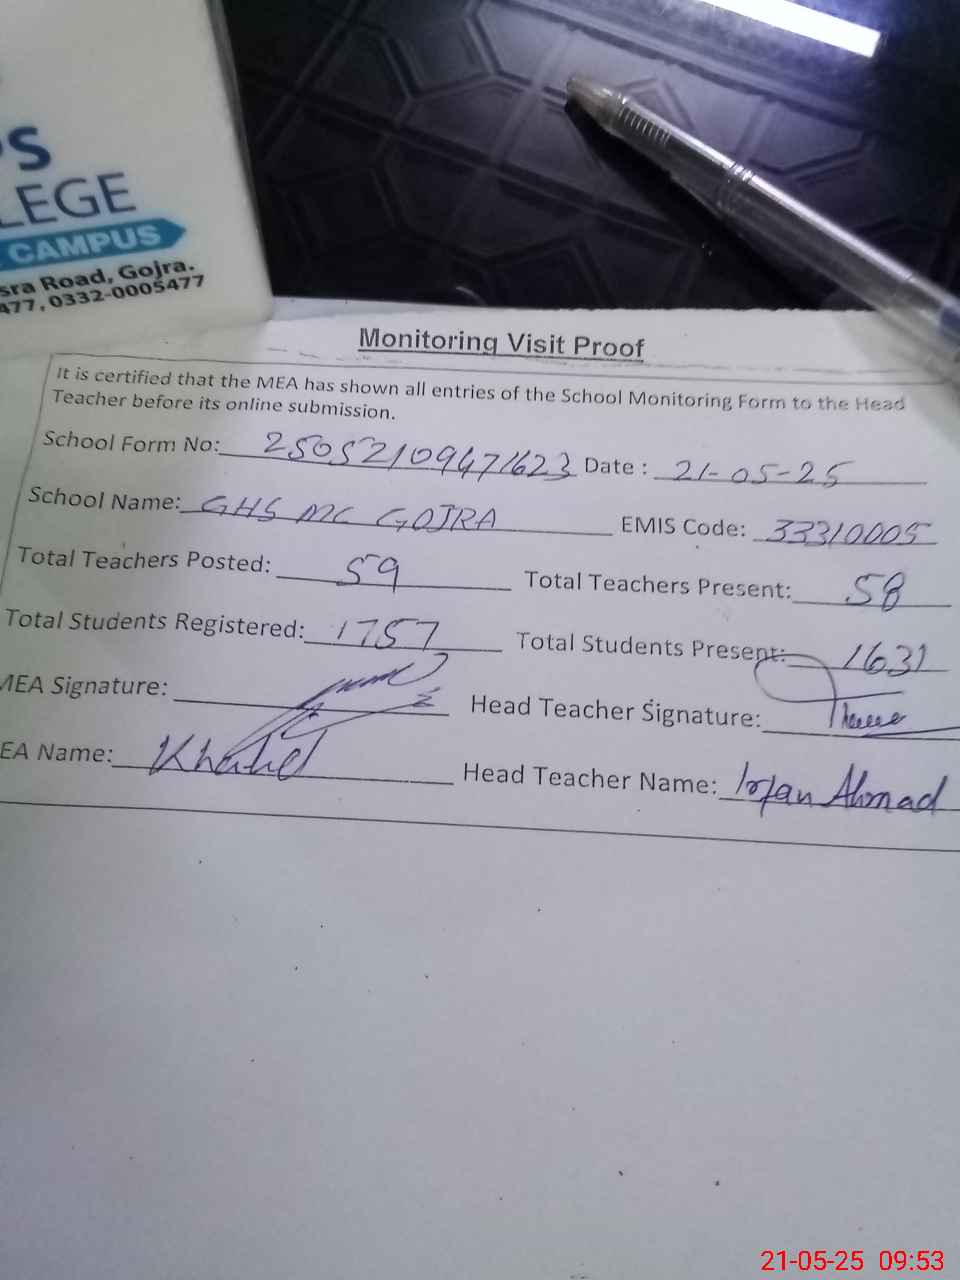 PS
LEGE
CAMPUS
sra Road, Gojra.
477, 0332-0005477
Monitoring Visit Proof
It is certified that the MEA has shown all entries of the School Monitoring Form to the Head
Teacher before its online submission.
School Form No: 25052109471623 Date : 21-05-25
School Name: GHS MC GOJRA EMIS Code: 33310005
Total Teachers Posted: 59 Total Teachers Present: 58
Total Students Registered: 1757 Total Students Present: 1631
MEA Signature: Head Teacher Signature:
EA Name: Khalid Head Teacher Name: Irfan Ahmad
21-05-25 09:53